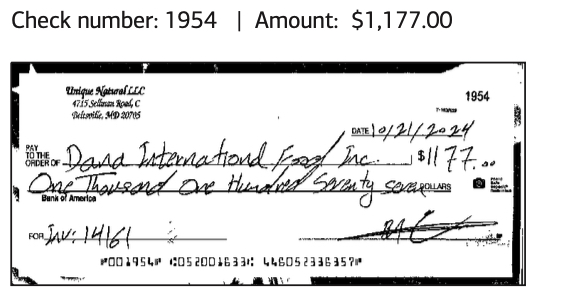 Check number: 1954 | Amount: $1,177.00
Unique Natural LLC
4715 Sellman Road, C
Beltsville, MD 20705
1954
DATE 10/21/2024
PAY TO THE ORDER OF Dana International Food Inc. $1177.00
One Thousand One Hundred Seventy seven DOLLARS
Bank of America
FOR Inv: 14161
⑈001954⑈ ⑆052001633⑆ 446052336357⑈